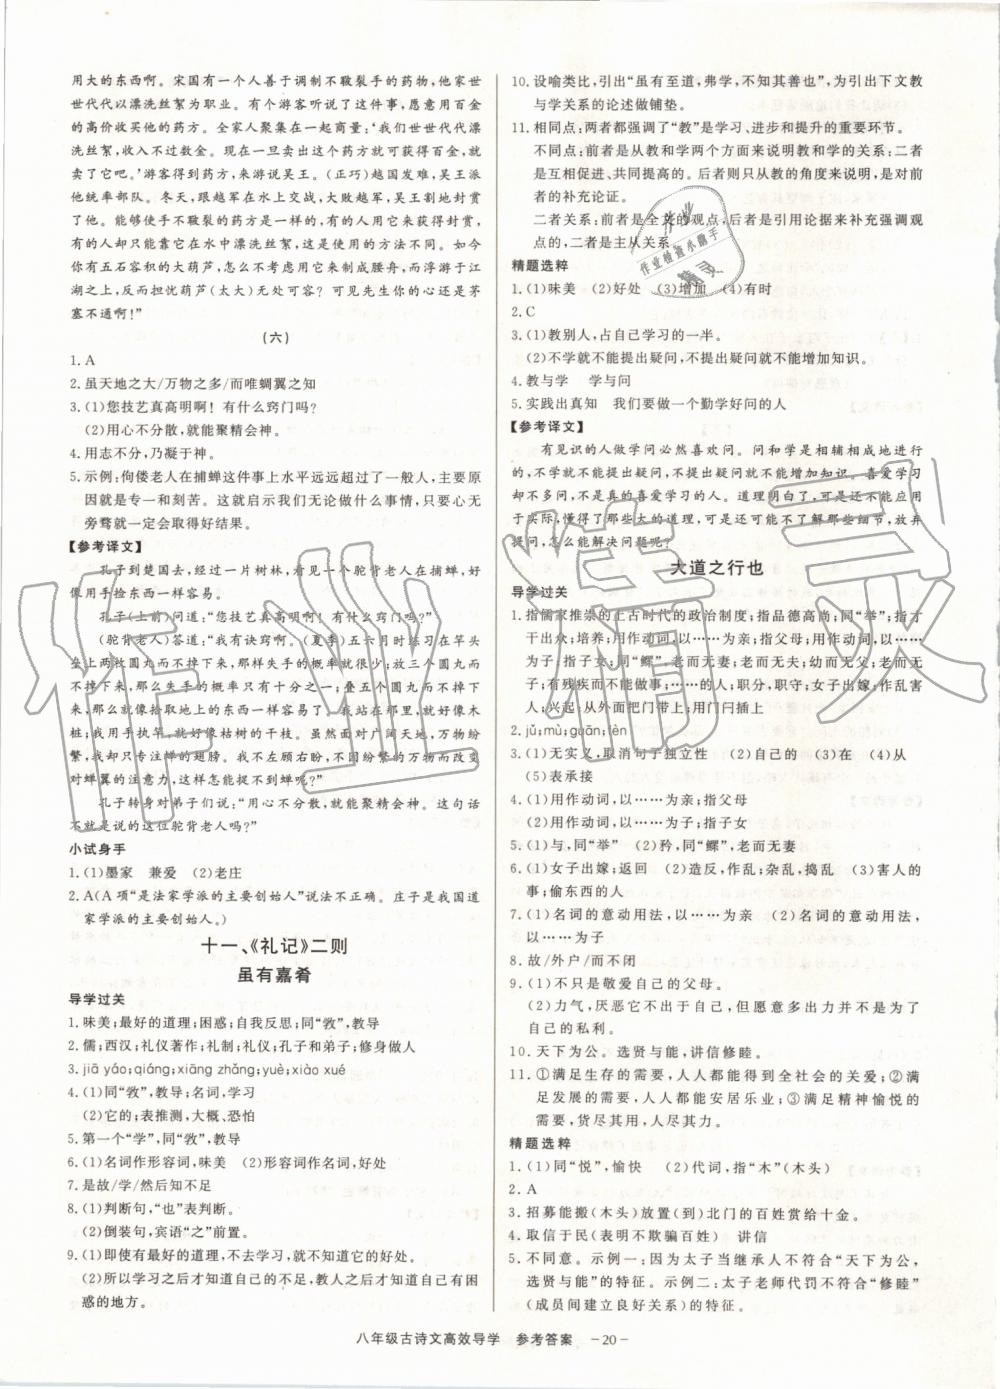 用大的东西啊。宋国有一个人善于调制不皲裂手的药物,他家世
世代代以漂洗丝絮为职业。有个游客听说了这件事,愿意用百金
的高价收买他的药方。全家人聚集在一起商量:‘我们世世代代漂
洗丝絮,收入不过数金。现在一旦卖出这个药方就可获得百金,就
卖了吧。’游客得到药方,来游说吴王。(正巧)越国发难,吴王派
他统率部队。冬天,跟越军在水上交战,大败越军,吴王割地封赏
了他。能够使手不皲裂的药方是一样的,有的人用它来获得封赏,
有的人却只靠它在水中漂洗丝絮,这是用法不同啊。如今
你有五石容积的大葫芦,怎么不考虑用它来制成腰舟,而浮游于江
湖之上,反而担忧葫芦(太大)无处可容?可见先生你的心还是茅
塞不通啊!”
(六)
1. A
2. 虽天地之大/万物之多/而唯蜩翼之知
3. (1)您技艺真高明啊!有什么窍门吗?
(2)用心不分散,就能聚精会神。
4. 用志不分,乃凝于神。
5. 示例:佝偻老人在捕蝉这件事上水平远远超过了一般人,主要原
因就是专一和刻苦。这就启示我们无论做什么事情,只要心无
旁骛就一定会取得好结果。
【参考译文】
孔子到楚国去,经过一片树林,看见一个驼背老人在捕蝉,好
像用手捡东西一样容易。
孔子(上前)问道:“您技艺真高明啊!有什么窍门吗?”
(驼背老人)答道:“我有诀窍啊。(夏季)五六月时练习在竿头
垒上两个圆丸而不掉下来,那样失手的概率就很小了;叠三个圆丸而
不掉下来,那么失手的概率只有十分之一;叠五个圆丸而不掉下
来,那么就像拾取地上的东西一样容易了。我站在那里,就好像木
桩;我用手执竿,就好像枯树的干枝。虽然面对广阔天地,万物纷
繁,我却只关注蝉的翅膀。我不左顾右盼,不因纷繁的万物而改变
对蝉翼的注意力,这样怎能捉不到蝉呢?”
孔子转身对弟子们说:“用心不分散,就能聚精会神。这句话
不就是说的这位驼背老人吗?”
小试身手
1. (1)墨家 兼爱 (2)老庄
2. A(A项“是法家学派的主要创始人”说法不正确。庄子是我国道
家学派的主要创始人。)
十一、《礼记》二则
虽有嘉肴
导学过关
1. 味美;最好的道理;困惑;自我反思;同“敩”,教导
2. 儒;西汉;礼仪著作;礼制;礼仪;孔子和弟子;修身做人
3. jiā yáo;qiáng;xiāng zhǎng;yuè;xiào xué
4. (1)同“敩”,教导;名词,学习
(2)它的;表推测,大概、恐怕
5. 第一个“学”,同“敩”,教导
6. (1)名词作形容词,味美 (2)形容词作名词,好处
7. 是故/学/然后知不足
8. (1)判断句,“也”表判断。
(2)倒装句,宾语“之”前置。
9. (1)即使有最好的道理,不去学习,就不知道它的好处。
(2)所以学习之后才知道自己的不足,教人之后才知道自己有困
惑的地方。
10. 设喻类比,引出“虽有至道,弗学,不知其善也”,为引出下文教
与学关系的论述做铺垫。
11. 相同点:两者都强调了“教”是学习、进步和提升的重要环节。
不同点:前者是从教和学两个方面来说明教和学的关系:二者
是互相促进、共同提高的。后者则只从教的角度来说明,是对前
者的补充论证。
二者关系:前者是全文的观点,后者是引用论据来补充强调观
点的,二者是主从关系。
精题选粹
1. (1)味美 (2)好处 (3)增加 (4)有时
2. C
3. (1)教别人,占自己学习的一半。
(2)不学就不能提出疑问,不提出疑问就不能增加知识。
4. 教与学 学与问
5. 实践出真知 我们要做一个勤学好问的人
【参考译文】
有见识的人做学问必然喜欢问。问和学是相辅相成地进行
的,不学就不能提出疑问,不提出疑问就不能增加知识。喜爱学习
却不多问,不是真的喜爱学习的人。道理明白了,可是还不能应用
于实际,懂得了那些大的道理,可是可能还不了解那些细节,放弃
提问,怎么能解决问题呢?
大道之行也
导学过关
1. 指儒家推崇的上古时代的政治制度;指品德高尚;同“举”;指才
干出众;培养;用作动词,以……为亲;指父母;用作动词,以……
为子;指子女;同“鳏”,老而无妻;老而无夫;幼而无父;老而无子;
有残疾而不能做事;……的人;职分,职守;女子出嫁;作乱害
人;兴起;从外面把门带上;用门闩插上
2. jǔ;mù;guān;lèn
3. (1)无实义,取消句子独立性 (2)自己的 (3)在 (4)从
(5)表承接
4. (1)用作动词,以……为亲;指父母
(2)用作动词,以……为子;指子女
5. (1)与,同“举” (2)矜,同“鳏”;老而无妻
6. (1)女子出嫁;返回 (2)造反,作乱;杂乱,捣乱 (3)害人的
事;偷东西的人
7. (1)名词的意动用法,以……为亲 (2)名词的意动用法,
以……为子
8. 故/外户/而不闭
9. (1)不只是敬爱自己的父母。
(2)力气,厌恶它不出于自己,但愿意多出力并不是为了
自己的私利。
10. 天下为公。选贤与能,讲信修睦。
11. ①满足生存的需要,人人都能得到全社会的关爱;②满
足发展的需要,人人都能安居乐业;③满足精神愉悦的
需要,货尽其用,人尽其力。
精题选粹
1. (1)同“悦”,愉快 (2)代词,指“木”(木头)
2. A
3. 招募能搬(木头)放置(到)北门的百姓赏给十金。
4. 取信于民(表明不欺骗百姓) 讲信
5. 不同意。示例一:因为太子当继承人不符合“天下为公,
选贤与能”的特征。示例二:太子老师代罚不符合“修睦”
(成员间建立良好关系)的特征。
八年级古诗文高效导学 参考答案 －20－
作业精灵
作业检查小助手